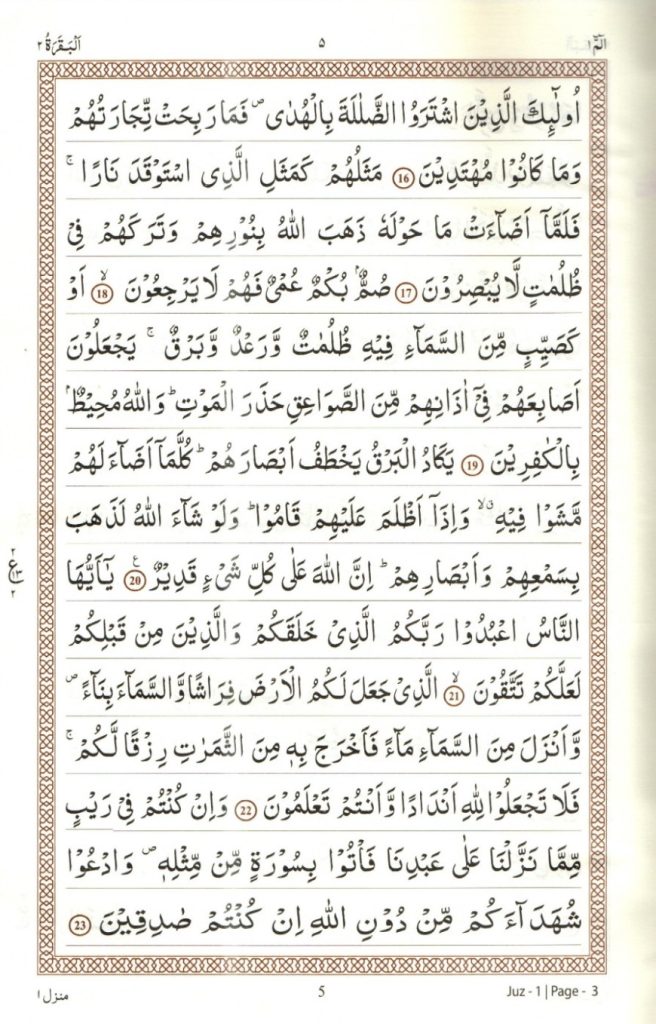 الٓمّٓ ١ ٥ اَلْبَقَرَةُ ٢
اُولٰٓئِكَ الَّذِيْنَ اشْتَرَوُا الضَّلٰلَةَ بِالْهُدٰى ۖ فَمَا رَبِحَتْ تِّجَارَتُهُمْ
وَمَا كَانُوْا مُهْتَدِيْنَ 16 مَثَلُهُمْ كَمَثَلِ الَّذِى اسْتَوْقَدَ نَارًا ۚ
فَلَمَّآ اَضَآءَتْ مَا حَوْلَهٗ ذَهَبَ اللّٰهُ بِنُوْرِهِمْ وَتَرَكَهُمْ فِيْ
ظُلُمٰتٍ لَّا يُبْصِرُوْنَ 17 صُمٌّۢ بُكْمٌ عُمْيٌ فَهُمْ لَا يَرْجِعُوْنَ ۙ 18 اَوْ
كَصَيِّبٍ مِّنَ السَّمَآءِ فِيْهِ ظُلُمٰتٌ وَّرَعْدٌ وَّبَرْقٌ ۚ يَجْعَلُوْنَ
اَصَابِعَهُمْ فِيْٓ اٰذَانِهِمْ مِّنَ الصَّوَاعِقِ حَذَرَ الْمَوْتِ ؕ وَاللّٰهُ مُحِيْطٌۢ
بِالْكٰفِرِيْنَ 19 يَكَادُ الْبَرْقُ يَخْطَفُ اَبْصَارَهُمْ ؕ كُلَّمَآ اَضَآءَ لَهُمْ
مَّشَوْا فِيْهِ ۙ وَاِذَآ اَظْلَمَ عَلَيْهِمْ قَامُوْا ؕ وَلَوْ شَآءَ اللّٰهُ لَذَهَبَ
بِسَمْعِهِمْ وَاَبْصَارِهِمْ ؕ اِنَّ اللّٰهَ عَلٰى كُلِّ شَيْءٍ قَدِيْرٌ 20 يٰٓاَيُّهَا
٢ ع ١٣ ٢
النَّاسُ اعْبُدُوْا رَبَّكُمُ الَّذِيْ خَلَقَكُمْ وَالَّذِيْنَ مِنْ قَبْلِكُمْ
لَعَلَّكُمْ تَتَّقُوْنَ ۙ 21 الَّذِيْ جَعَلَ لَكُمُ الْاَرْضَ فِرَاشًا وَّالسَّمَآءَ بِنَآءً ۖ
وَّاَنْزَلَ مِنَ السَّمَآءِ مَآءً فَاَخْرَجَ بِهٖ مِنَ الثَّمَرٰتِ رِزْقًا لَّكُمْ ۚ
فَلَا تَجْعَلُوْا لِلّٰهِ اَنْدَادًا وَّاَنْتُمْ تَعْلَمُوْنَ 22 وَاِنْ كُنْتُمْ فِيْ رَيْبٍ
مِّمَّا نَزَّلْنَا عَلٰى عَبْدِنَا فَاْتُوْا بِسُوْرَةٍ مِّنْ مِّثْلِهٖ ۖ وَادْعُوْا
شُهَدَآءَكُمْ مِّنْ دُوْنِ اللّٰهِ اِنْ كُنْتُمْ صٰدِقِيْنَ 23
منزل ١ 5 Juz - 1 | Page - 3